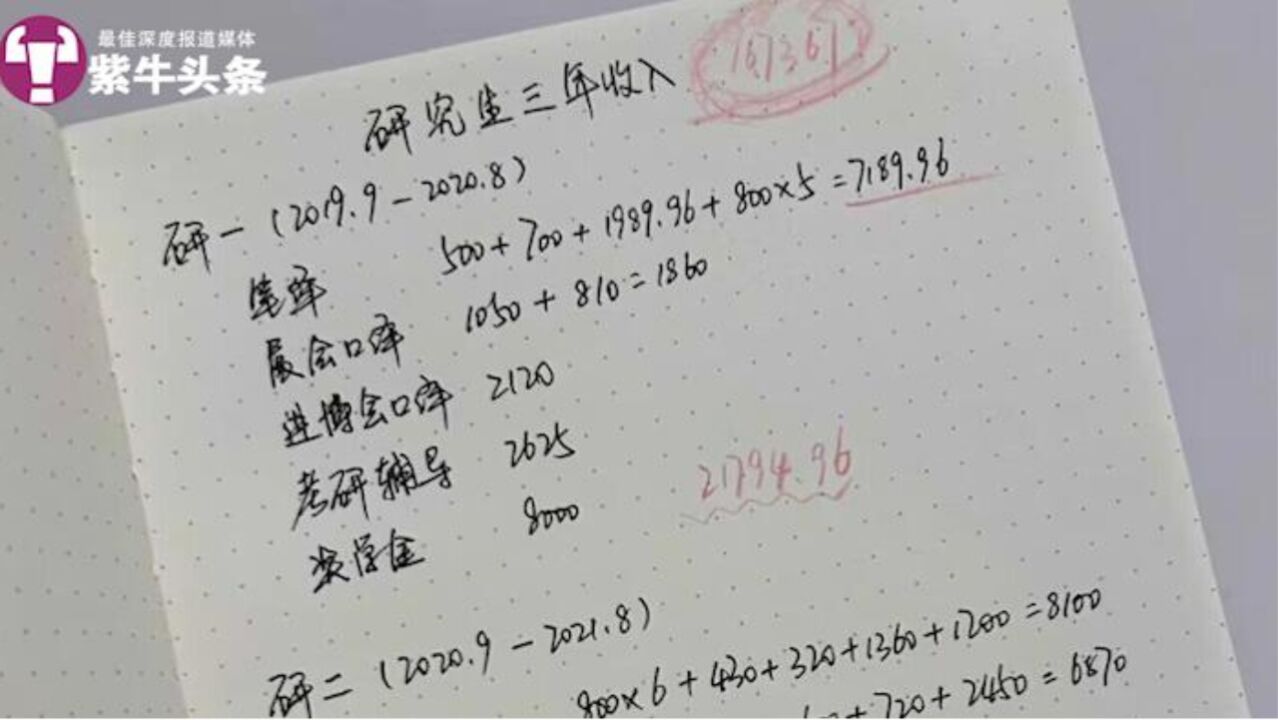 最佳深度报道媒体
紫牛头条
研究生三年收入
研一(2019.9-2020.8)
笔译 500+700+1989.96+800×5=7189.96
展会口译 1050+810=1860
进博会口译 2120
考研辅导 2625
奖学金 8000
21794.96
研二(2020.9-2021.8)
800×6+430+320+1360+1200=8100
+720+2450=6870